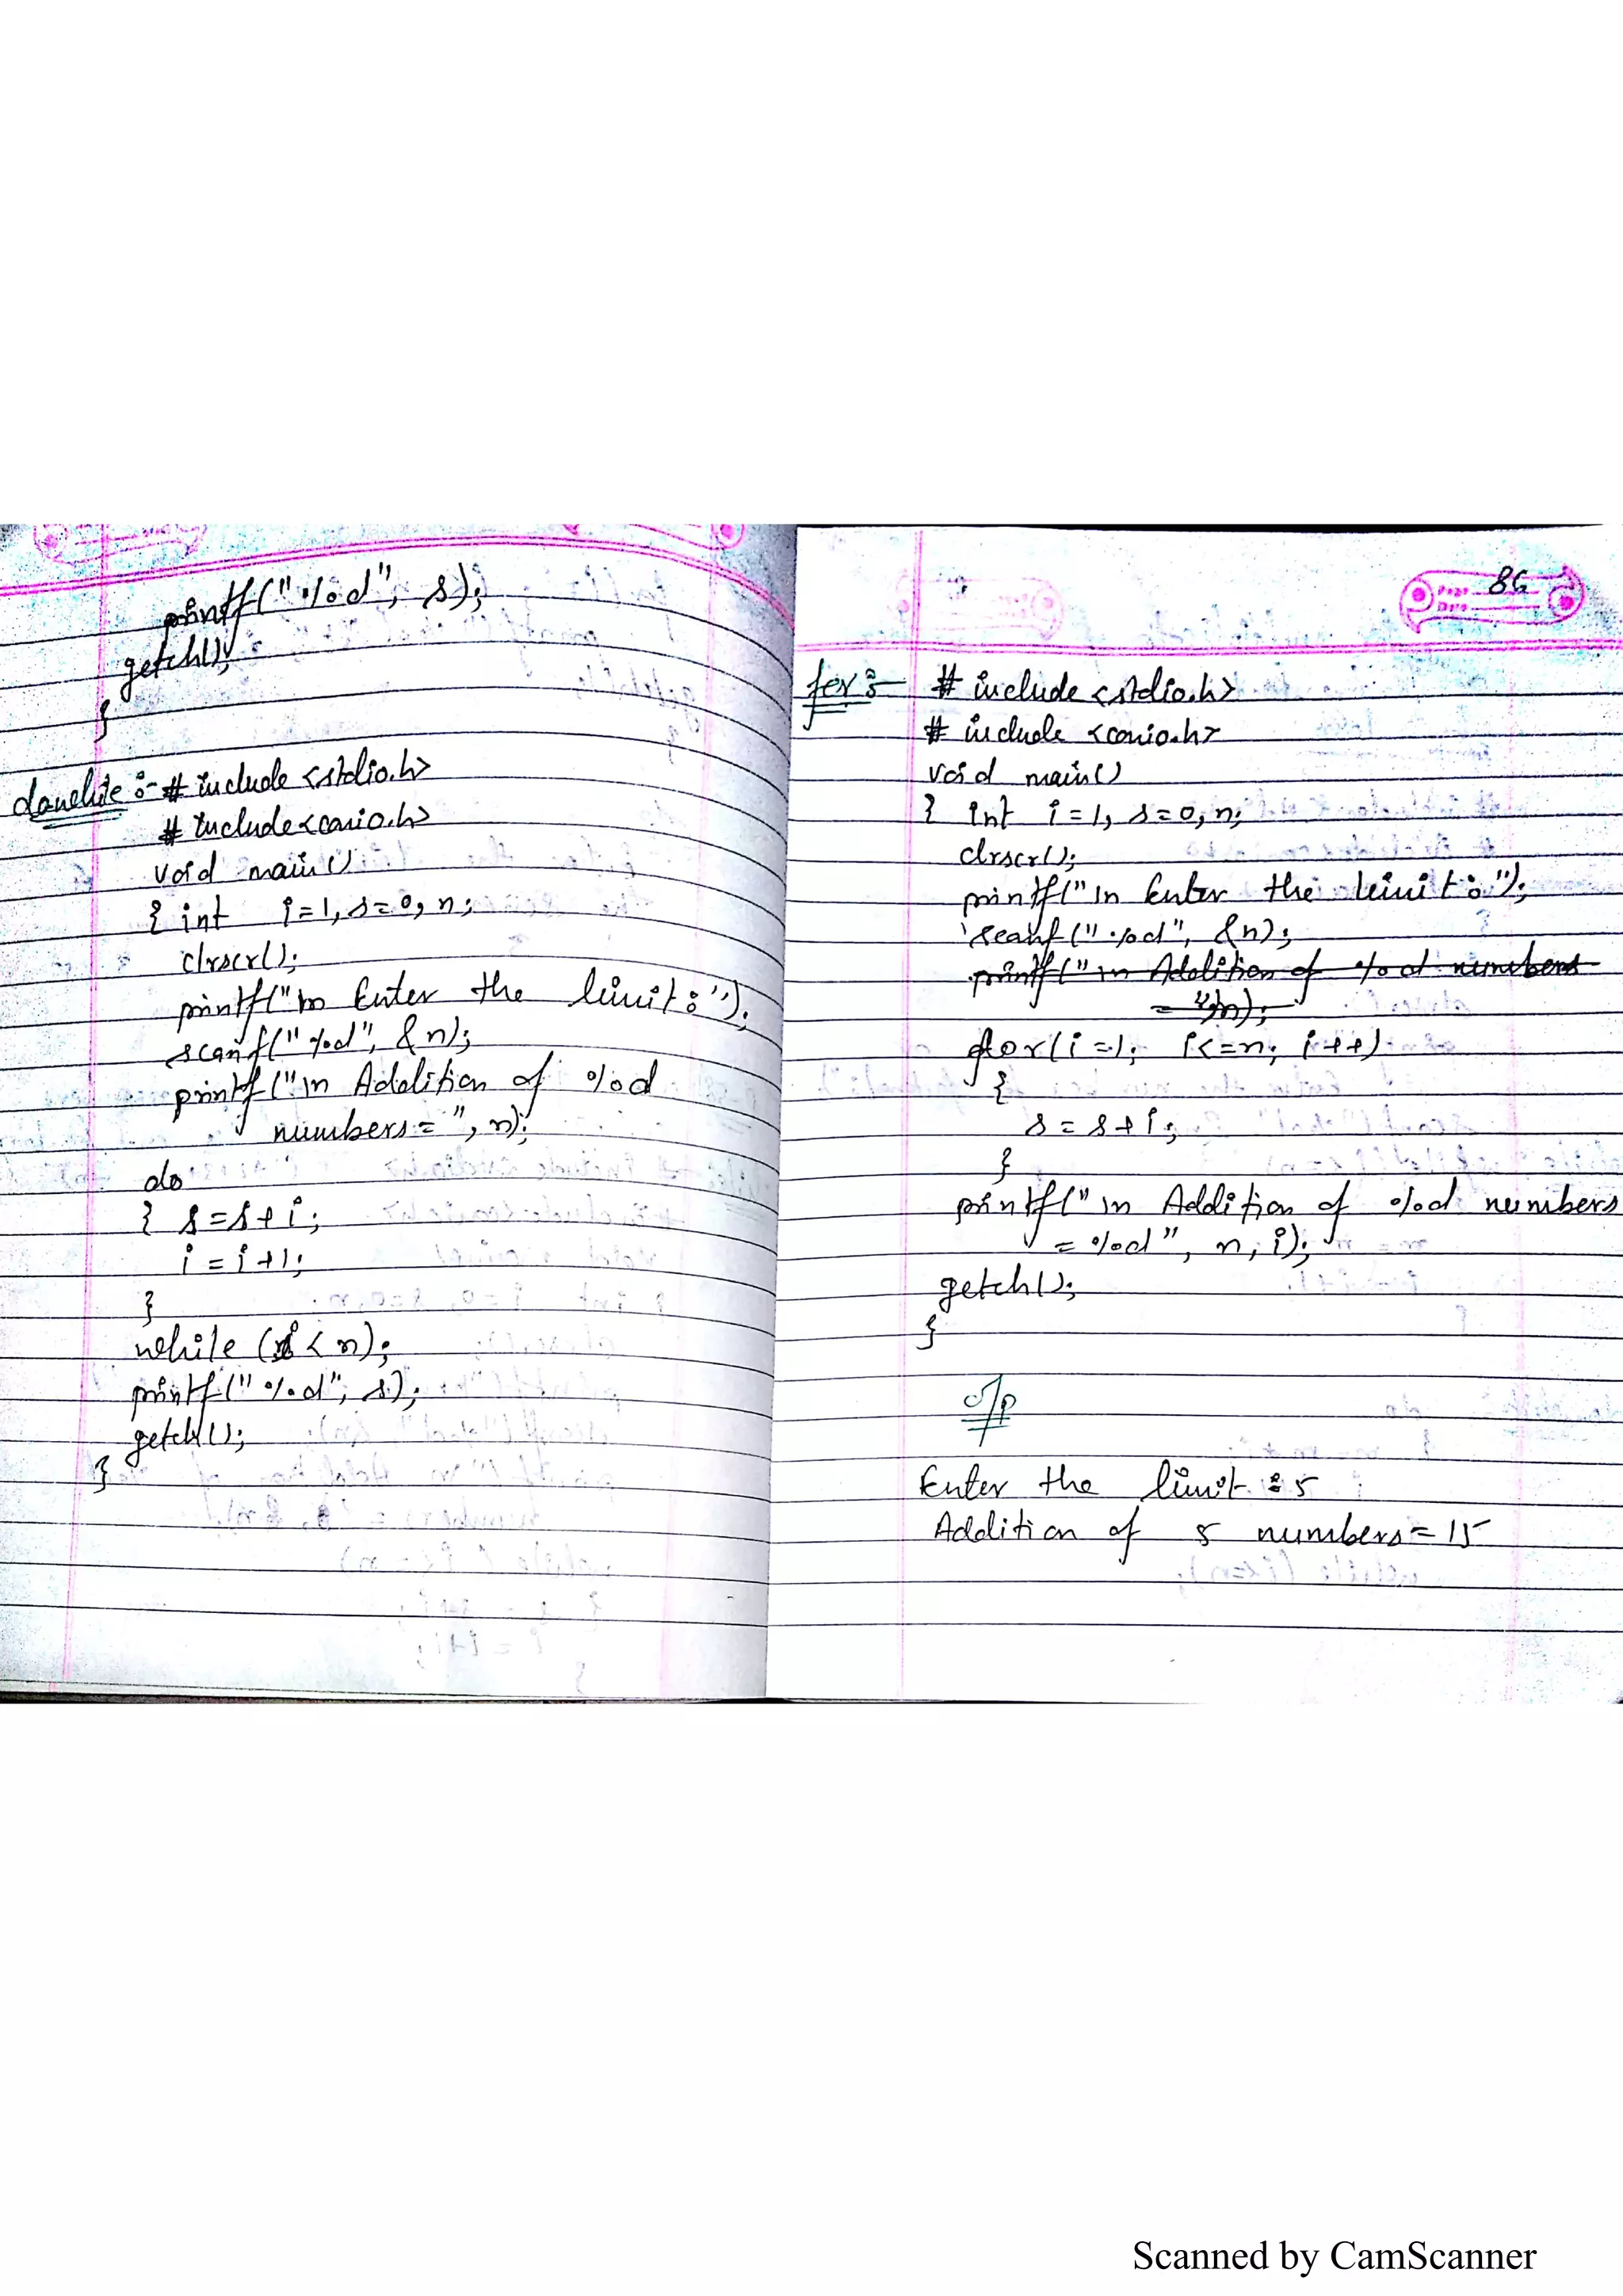 printf("%d", s);
getch();
}
dowhile :- # include <stdio.h>
# include <conio.h>
void main()
{ int i=1, s=0, n;
clrscr();
printf("\n Enter the limit : ");
scanf("%d", &n);
printf("\n Addition of %d
numbers = ", n);
do
{ s=s+i;
i=i+1;
}
while (i<n);
printf("%d", s);
getch();
}
86
for :- # include <stdio.h>
# include <conio.h>
void main()
{ int i=1, s=0, n;
clrscr();
printf("\n Enter the limit : ");
scanf("%d", &n);
printf("\n Addition of %d numbers
= ",n);
for(i=1; i<=n; i++)
{
s = s+i;
}
printf("\n Addition of %d numbers
= %d", n, i);
getch();
}
o/p
Enter the limit : 5
Addition of 5 numbers = 15
Scanned by CamScanner